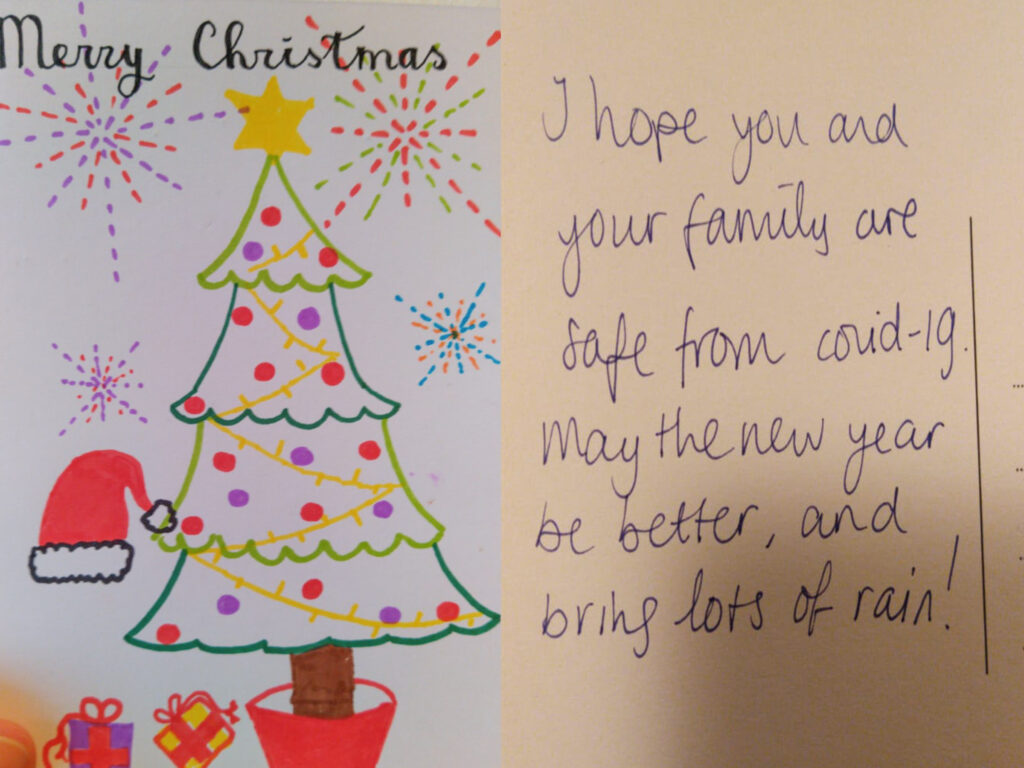 Merry Christmas
I hope you and
your family are
safe from covid-19.
May the new year
be better, and
bring lots of rain!